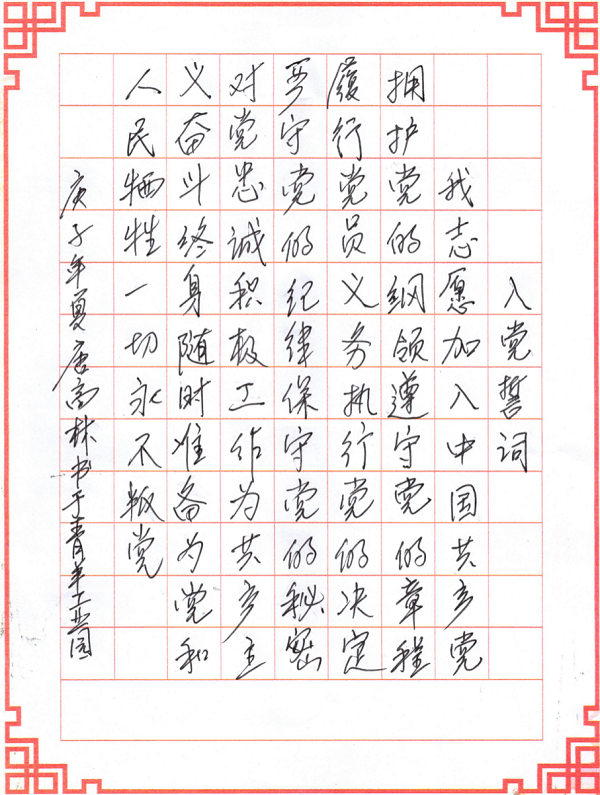 入党誓词
我志愿加入中国共产党
拥护党的纲领遵守党的章程
履行党员义务执行党的决定
严守党的纪律保守党的秘密
对党忠诚积极工作为共产主
义奋斗终身随时准备为党和
人民牺牲一切永不叛党
庚子年夏唐高林书于青羊工业园